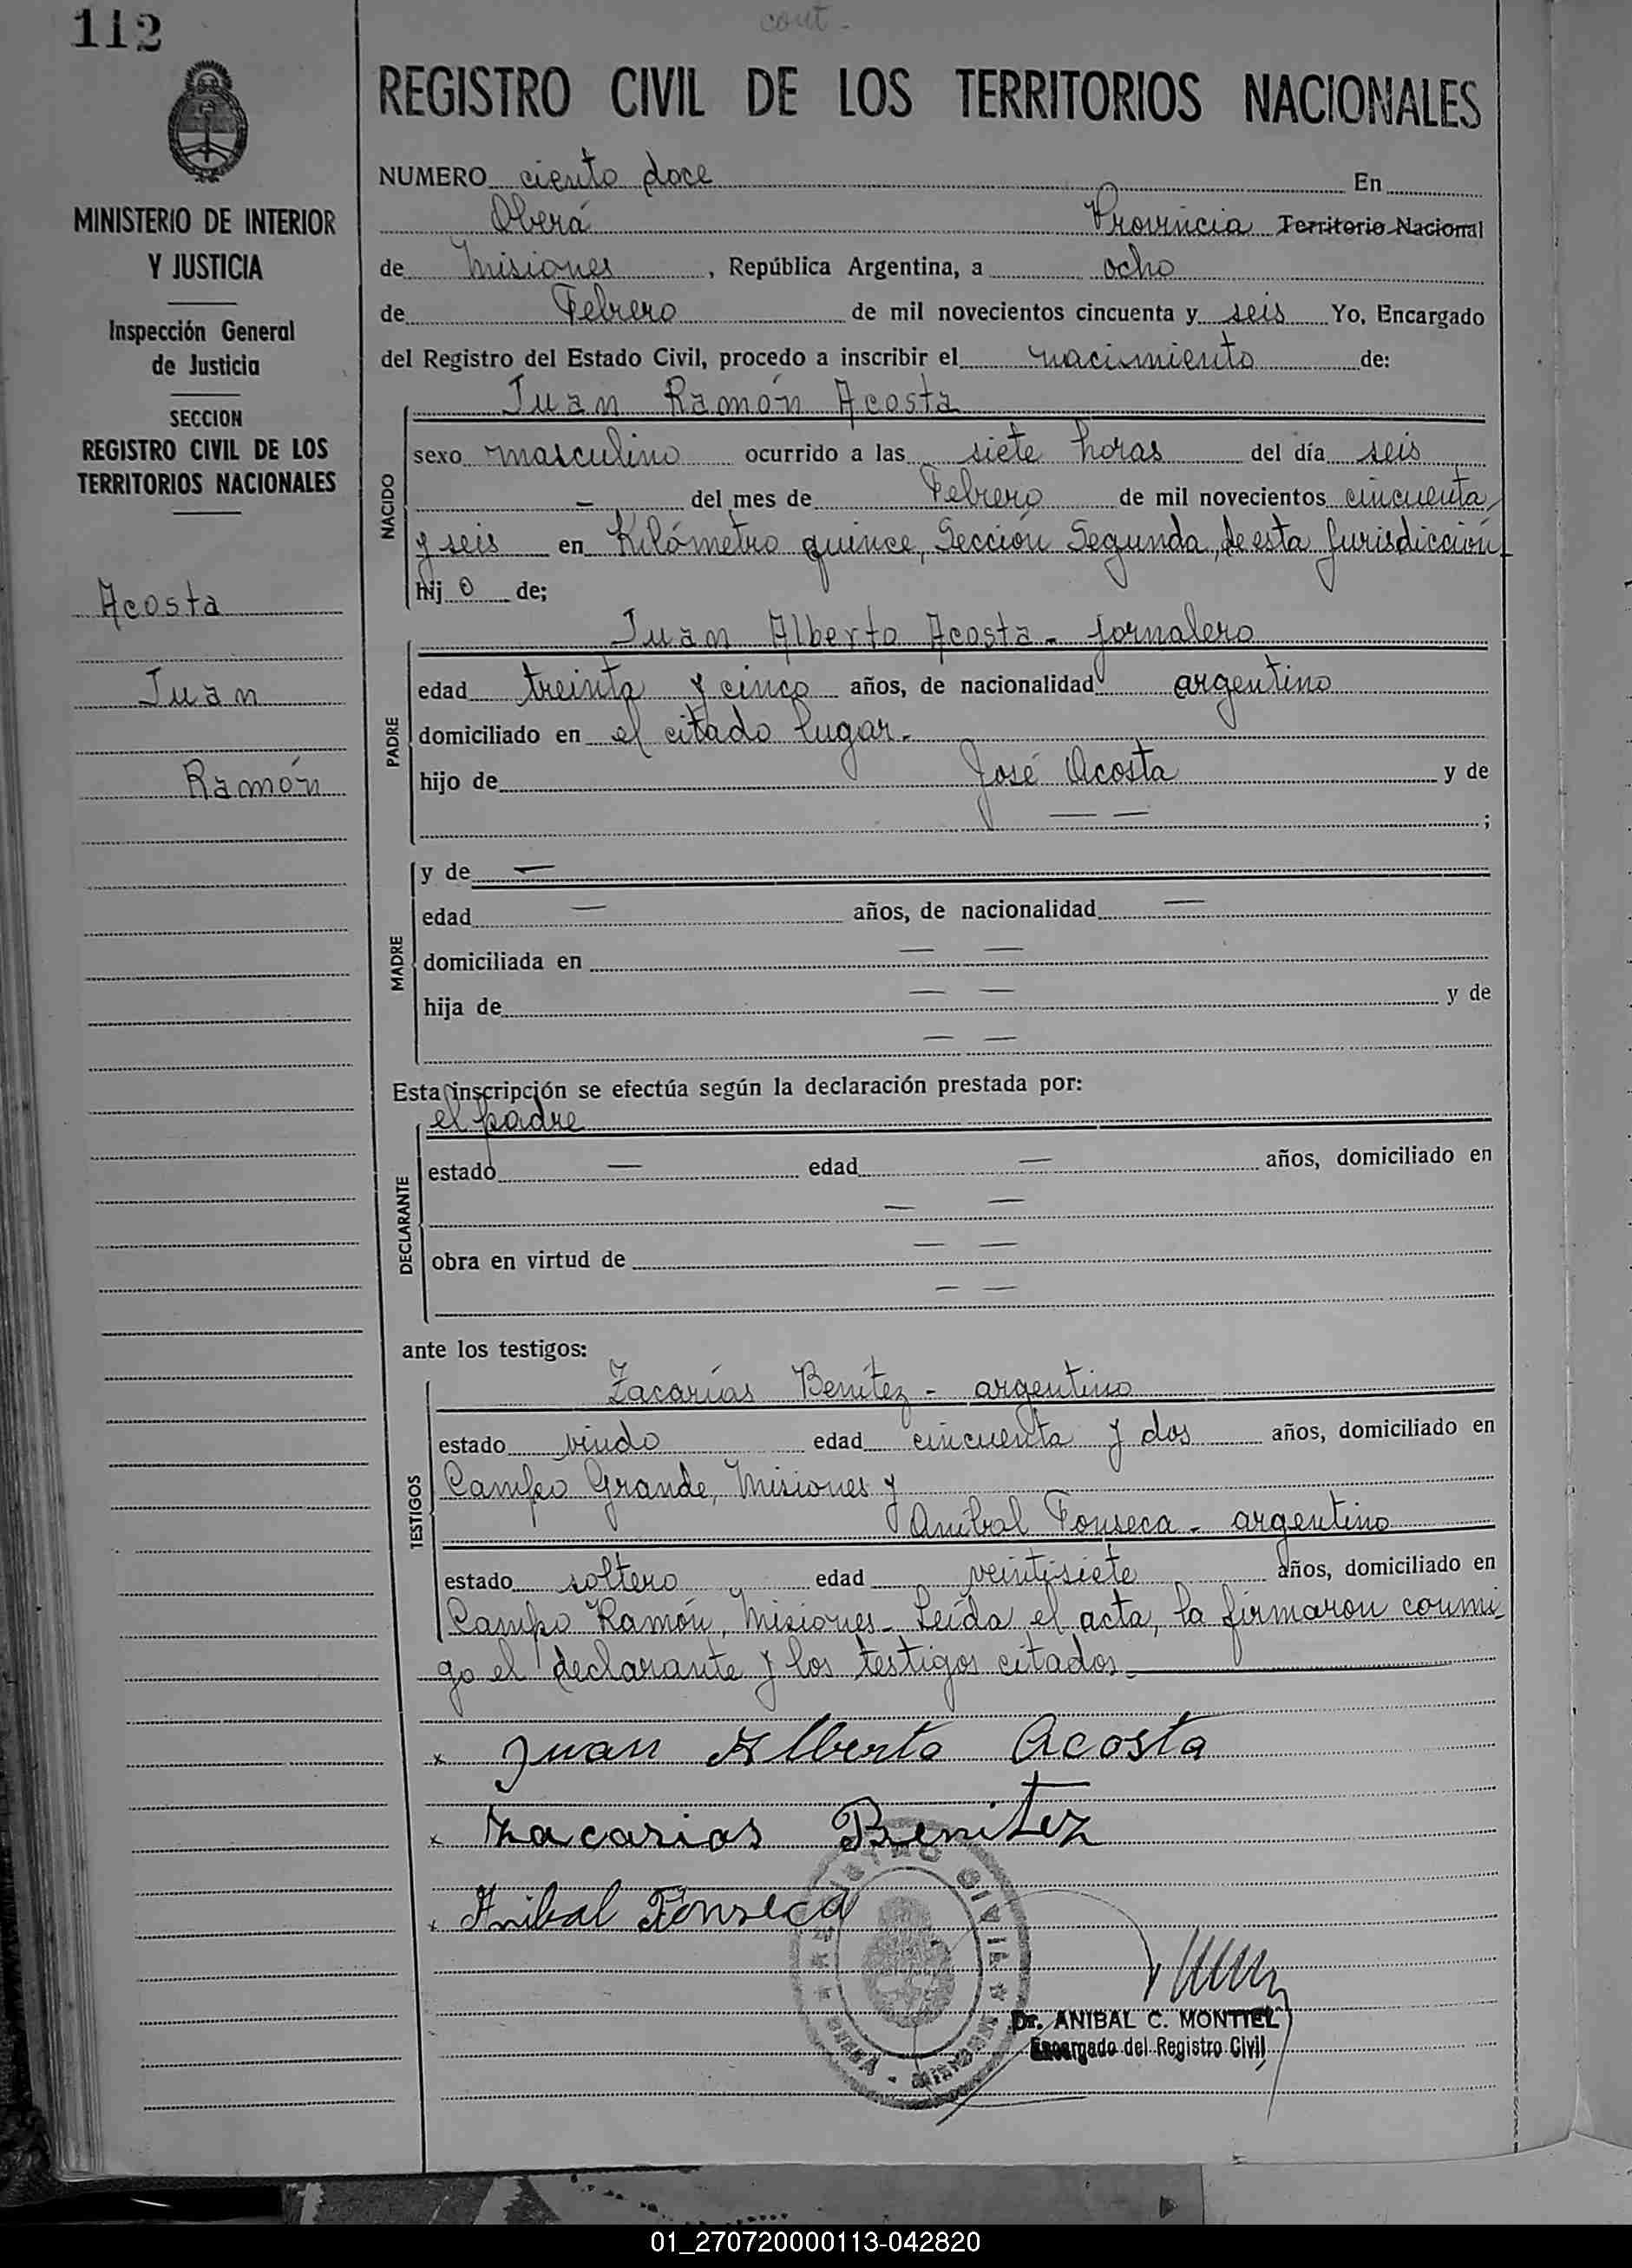 112
cont-
MINISTERIO DE INTERIOR
Y JUSTICIA
Inspección General
de Justicia
SECCION
REGISTRO CIVIL DE LOS
TERRITORIOS NACIONALES
Acosta
Juan
Ramón
REGISTRO CIVIL DE LOS TERRITORIOS NACIONALES
NUMERO ciento doce En
Oberá Provincia Territorio Nacional
de Misiones, República Argentina, a ocho
de Febrero de mil novecientos cincuenta y seis Yo, Encargado
del Registro del Estado Civil, procedo a inscribir el nacimiento de:
Juan Ramón Acosta
NACIDO
sexo masculino ocurrido a las siete horas del día seis
— del mes de Febrero de mil novecientos cincuenta
y seis en Kilómetro quince, Sección Segunda, de esta Jurisdicción
hijo de;
Juan Alberto Acosta - jornalero
PADRE
edad treinta y cinco años, de nacionalidad argentino
domiciliado en el citado lugar.-
hijo de José Acosta y de
— — ;
MADRE
y de —
edad — años, de nacionalidad —
domiciliada en — —
hija de — — y de
— —
Esta inscripción se efectúa según la declaración prestada por:
el padre
DECLARANTE
estado — edad — años, domiciliado en
— —
obra en virtud de — —
— —
ante los testigos:
TESTIGOS
Zacarías Benítez - argentino
estado viudo edad cincuenta y dos años, domiciliado en
Campo Grande, Misiones y
Aníbal Fonseca - argentino
estado soltero edad veintisiete años, domiciliado en
Campo Ramón, Misiones- Leída el acta, la firmaron conmi-
go el declarante y los testigos citados.-
x Juan Alberto Acosta
x Zacarias Benitez
x Anibal Fonseca
REGISTRO CIVIL * MISIONES - OBERA *
Dr. ANIBAL C. MONTIEL
Encargado del Registro Civil
01_270720000113-042820